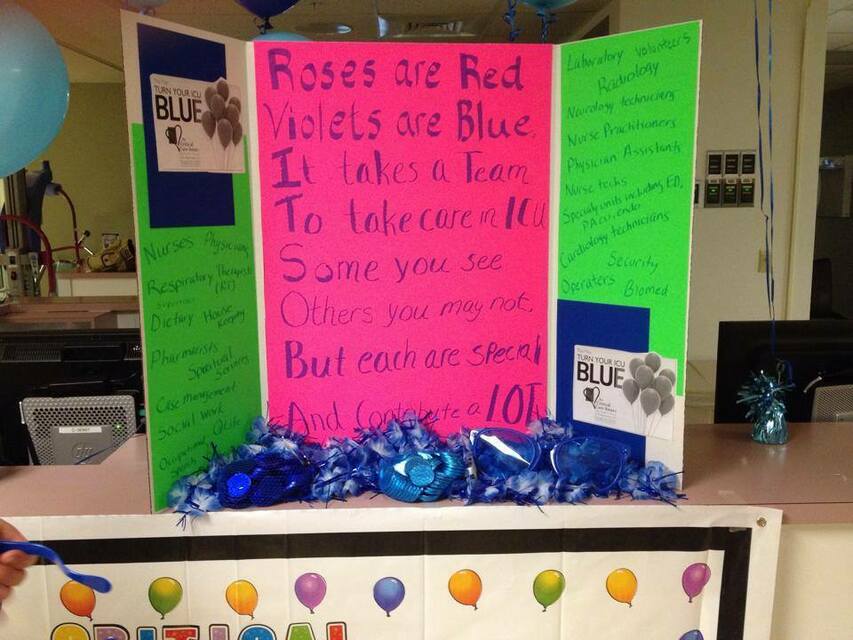 TURN YOUR ICU
BLUE
Nurses Physicians
Respiratory Therapists
(RT)
Dietary House
Keeping
Pharmacists
Spiritual
Services
Case management
Social Work
Occupational
Speech
Roses are Red
Violets are Blue,
It takes a Team
To take care in ICU
Some you see
Others you may not,
But each are special
And Contribute a LOT
Laboratory volunteers
Radiology
Neurology technicians
Nurse Practitioners
Physician Assistants
Nurse techs
Specialty units including ED,
PACU, endo
Cardiology technicians
Security
Operators Biomed
TURN YOUR ICU
BLUE
CRITICAL